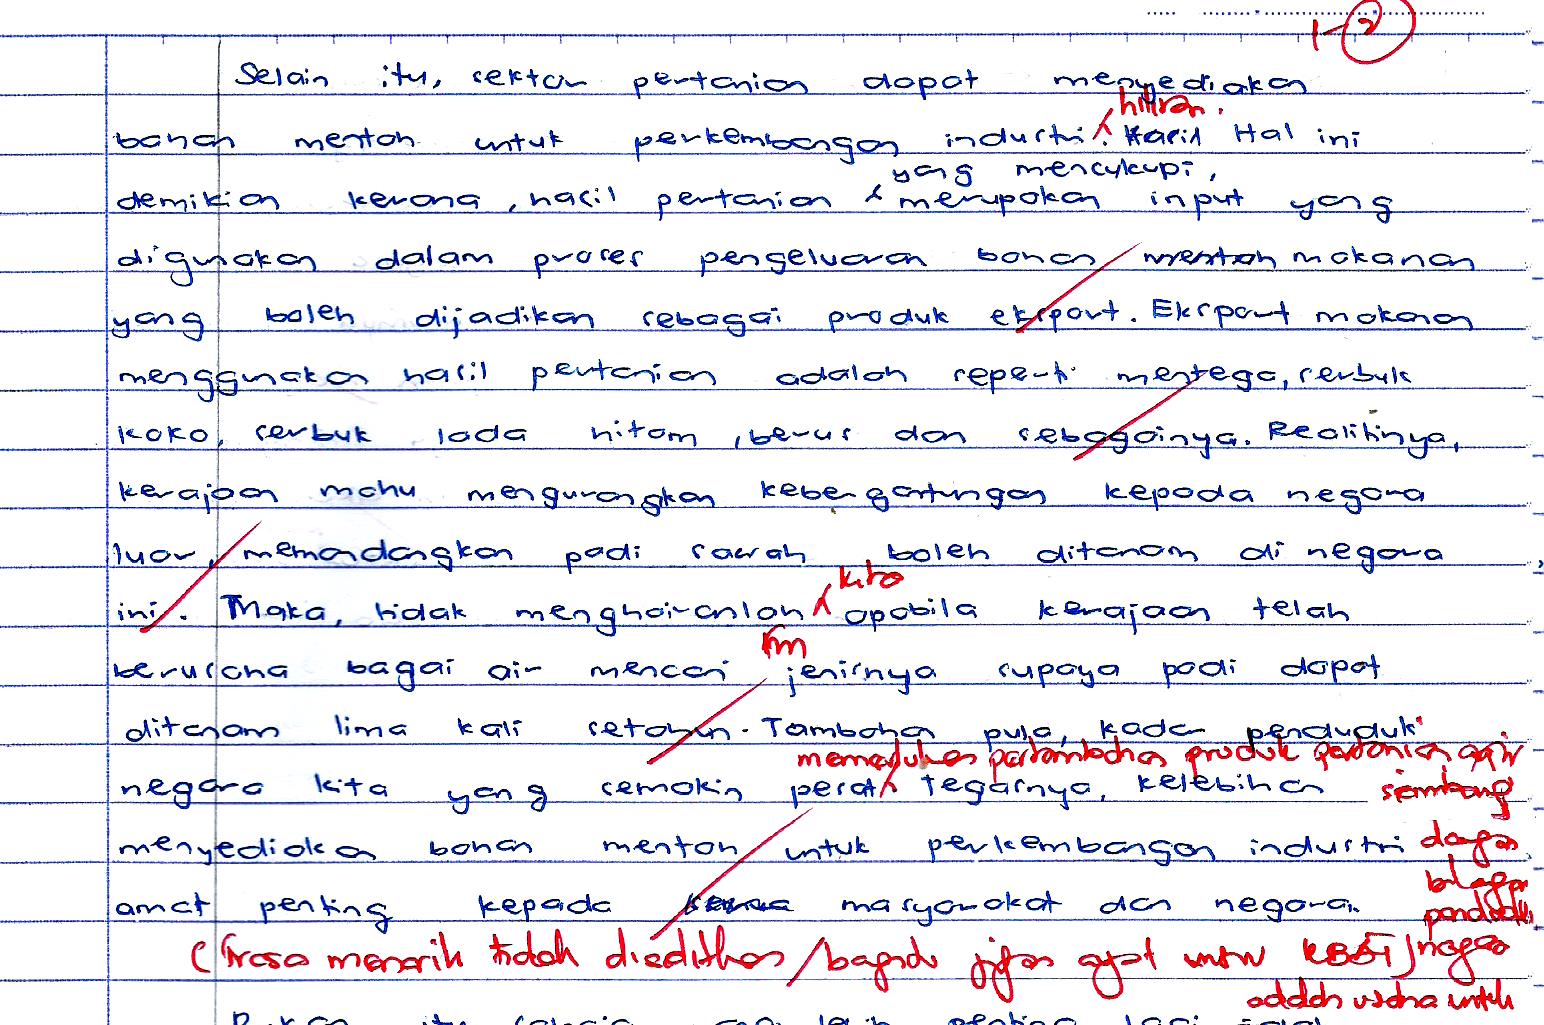 1-2
Selain itu, sektor pertanian dapat menyediakan
hiliran.
bahan mentah untuk perkembangan industri. Hasil Hal ini
yang mencukupi,
demikian kerana, hasil pertanian merupakan input yang
digunakan dalam proses pengeluaran bahan mentah makanan
yang boleh dijadikan sebagai produk eksport. Eksport makanan
menggunakan hasil pertanian adalah seperti mentega, serbuk
koko, serbuk lada hitam, berus dan sebagainya. Realitinya,
kerajaan mahu mengurangkan kebergantungan kepada negara
luar, memandangkan padi sawah boleh ditanam di negara
kita
ini. Maka, tidak menghairanlah apabila kerajaan telah
berusaha bagai air mencari jenisnya supaya padi dapat
ditanam lima kali setahun. Tambahan pula, kadar penduduk
memerlukan pertambahan produk pertanian agar
negara kita yang semakin pesat tegasnya, kelebihan seimbang
menyediakan bahan mentah untuk perkembangan industri dengan
bilangan
amat penting kepada masyarakat dan negara. penduduk
(Frasa menarik tidak dieditkan / negara
adalah usaha untuk